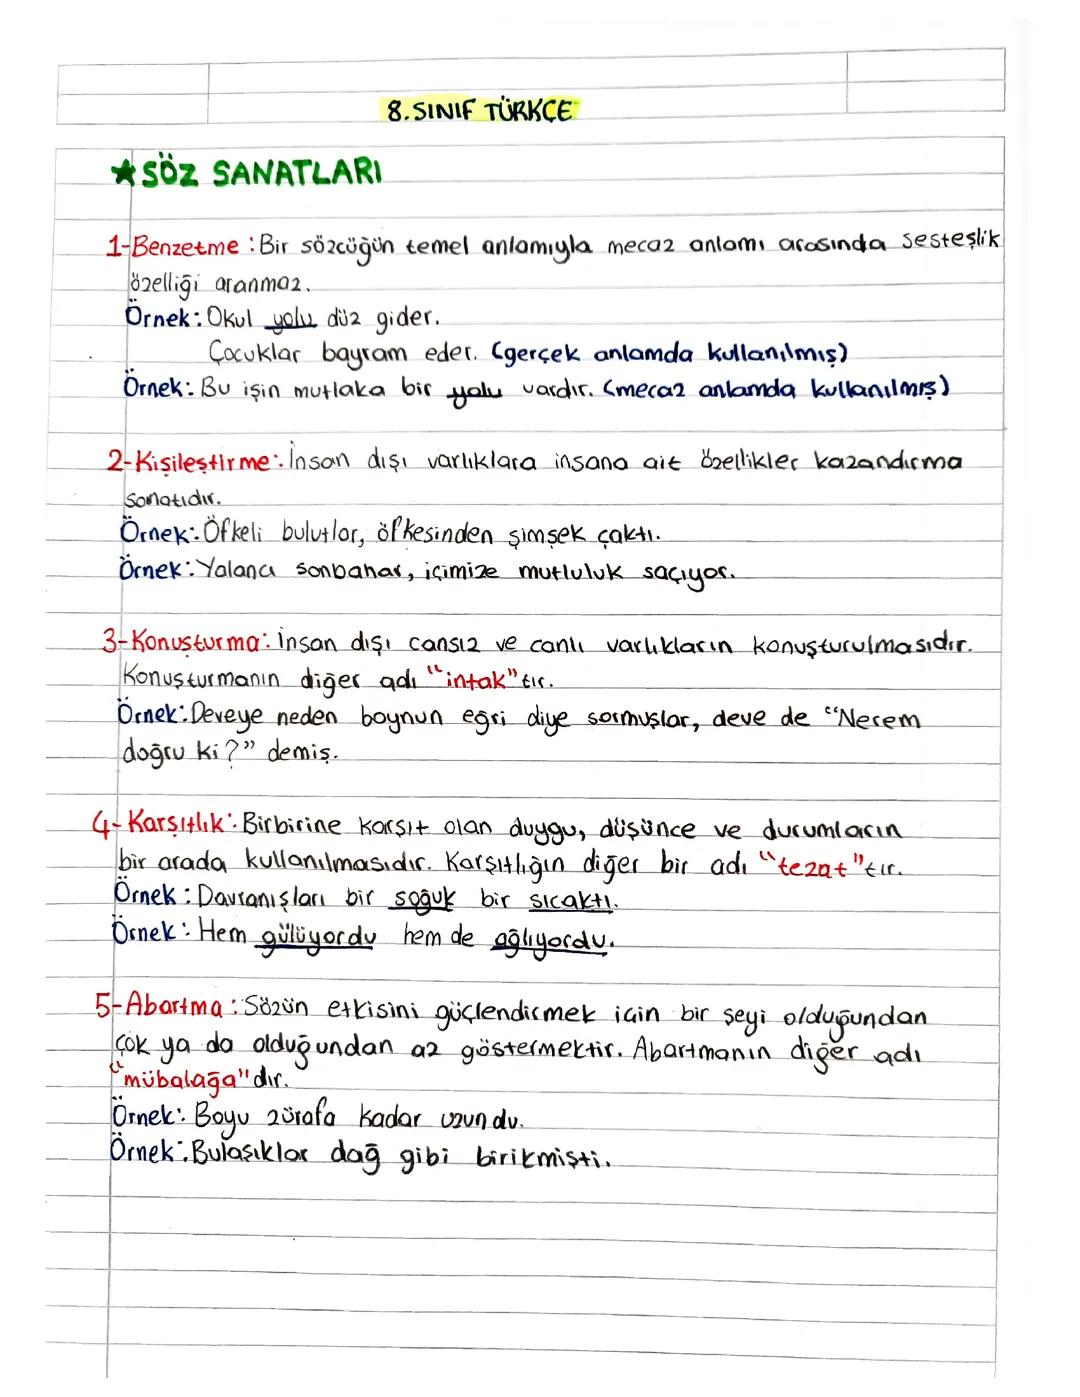 8.SINIF TÜRKÇE
★SÖZ SANATLARI
1-Benzetme: Bir sözcüğün temel anlamıyla mecaz anlamı arasında sesteşlik
özelliği aranmaz.
Örnek: Okul yolu düz gider.
Çocuklar bayram eder. (gerçek anlamda kullanılmış)
Örnek: Bu işin mutlaka bir yolu vardır. (mecaz anlamda kullanılmış)
2-Kişileştirme: İnsan dışı varlıklara insana ait özellikler kazandırma
sanatıdır.
Örnek: Öfkeli bulutlar, öfkesinden şimşek çaktı.
Örnek: Yalancı sonbahar, içimize mutluluk saçıyor.
3-Konuşturma: İnsan dışı cansız ve canlı varlıkların konuşturulmasıdır.
Konuşturmanın diğer adı "intak"tır.
Örnek: Deveye neden boynun eğri diye sormuşlar, deve de "Nerem
doğru ki?" demiş.
4-Karşıtlık: Birbirine karşıt olan duygu, düşünce ve durumların
bir arada kullanılmasıdır. Karşıtlığın diğer bir adı "tezat"tır.
Örnek: Davranışları bir soğuk bir sıcaktı.
Örnek: Hem gülüyordu hem de ağlıyordu.
5-Abartma: Sözün etkisini güçlendirmek için bir şeyi olduğundan
çok ya da olduğundan az göstermektir. Abartmanın diğer adı
"mübalağa"dır.
Örnek: Boyu zürafa kadar uzundu.
Örnek: Bulaşıklar dağ gibi birikmişti.